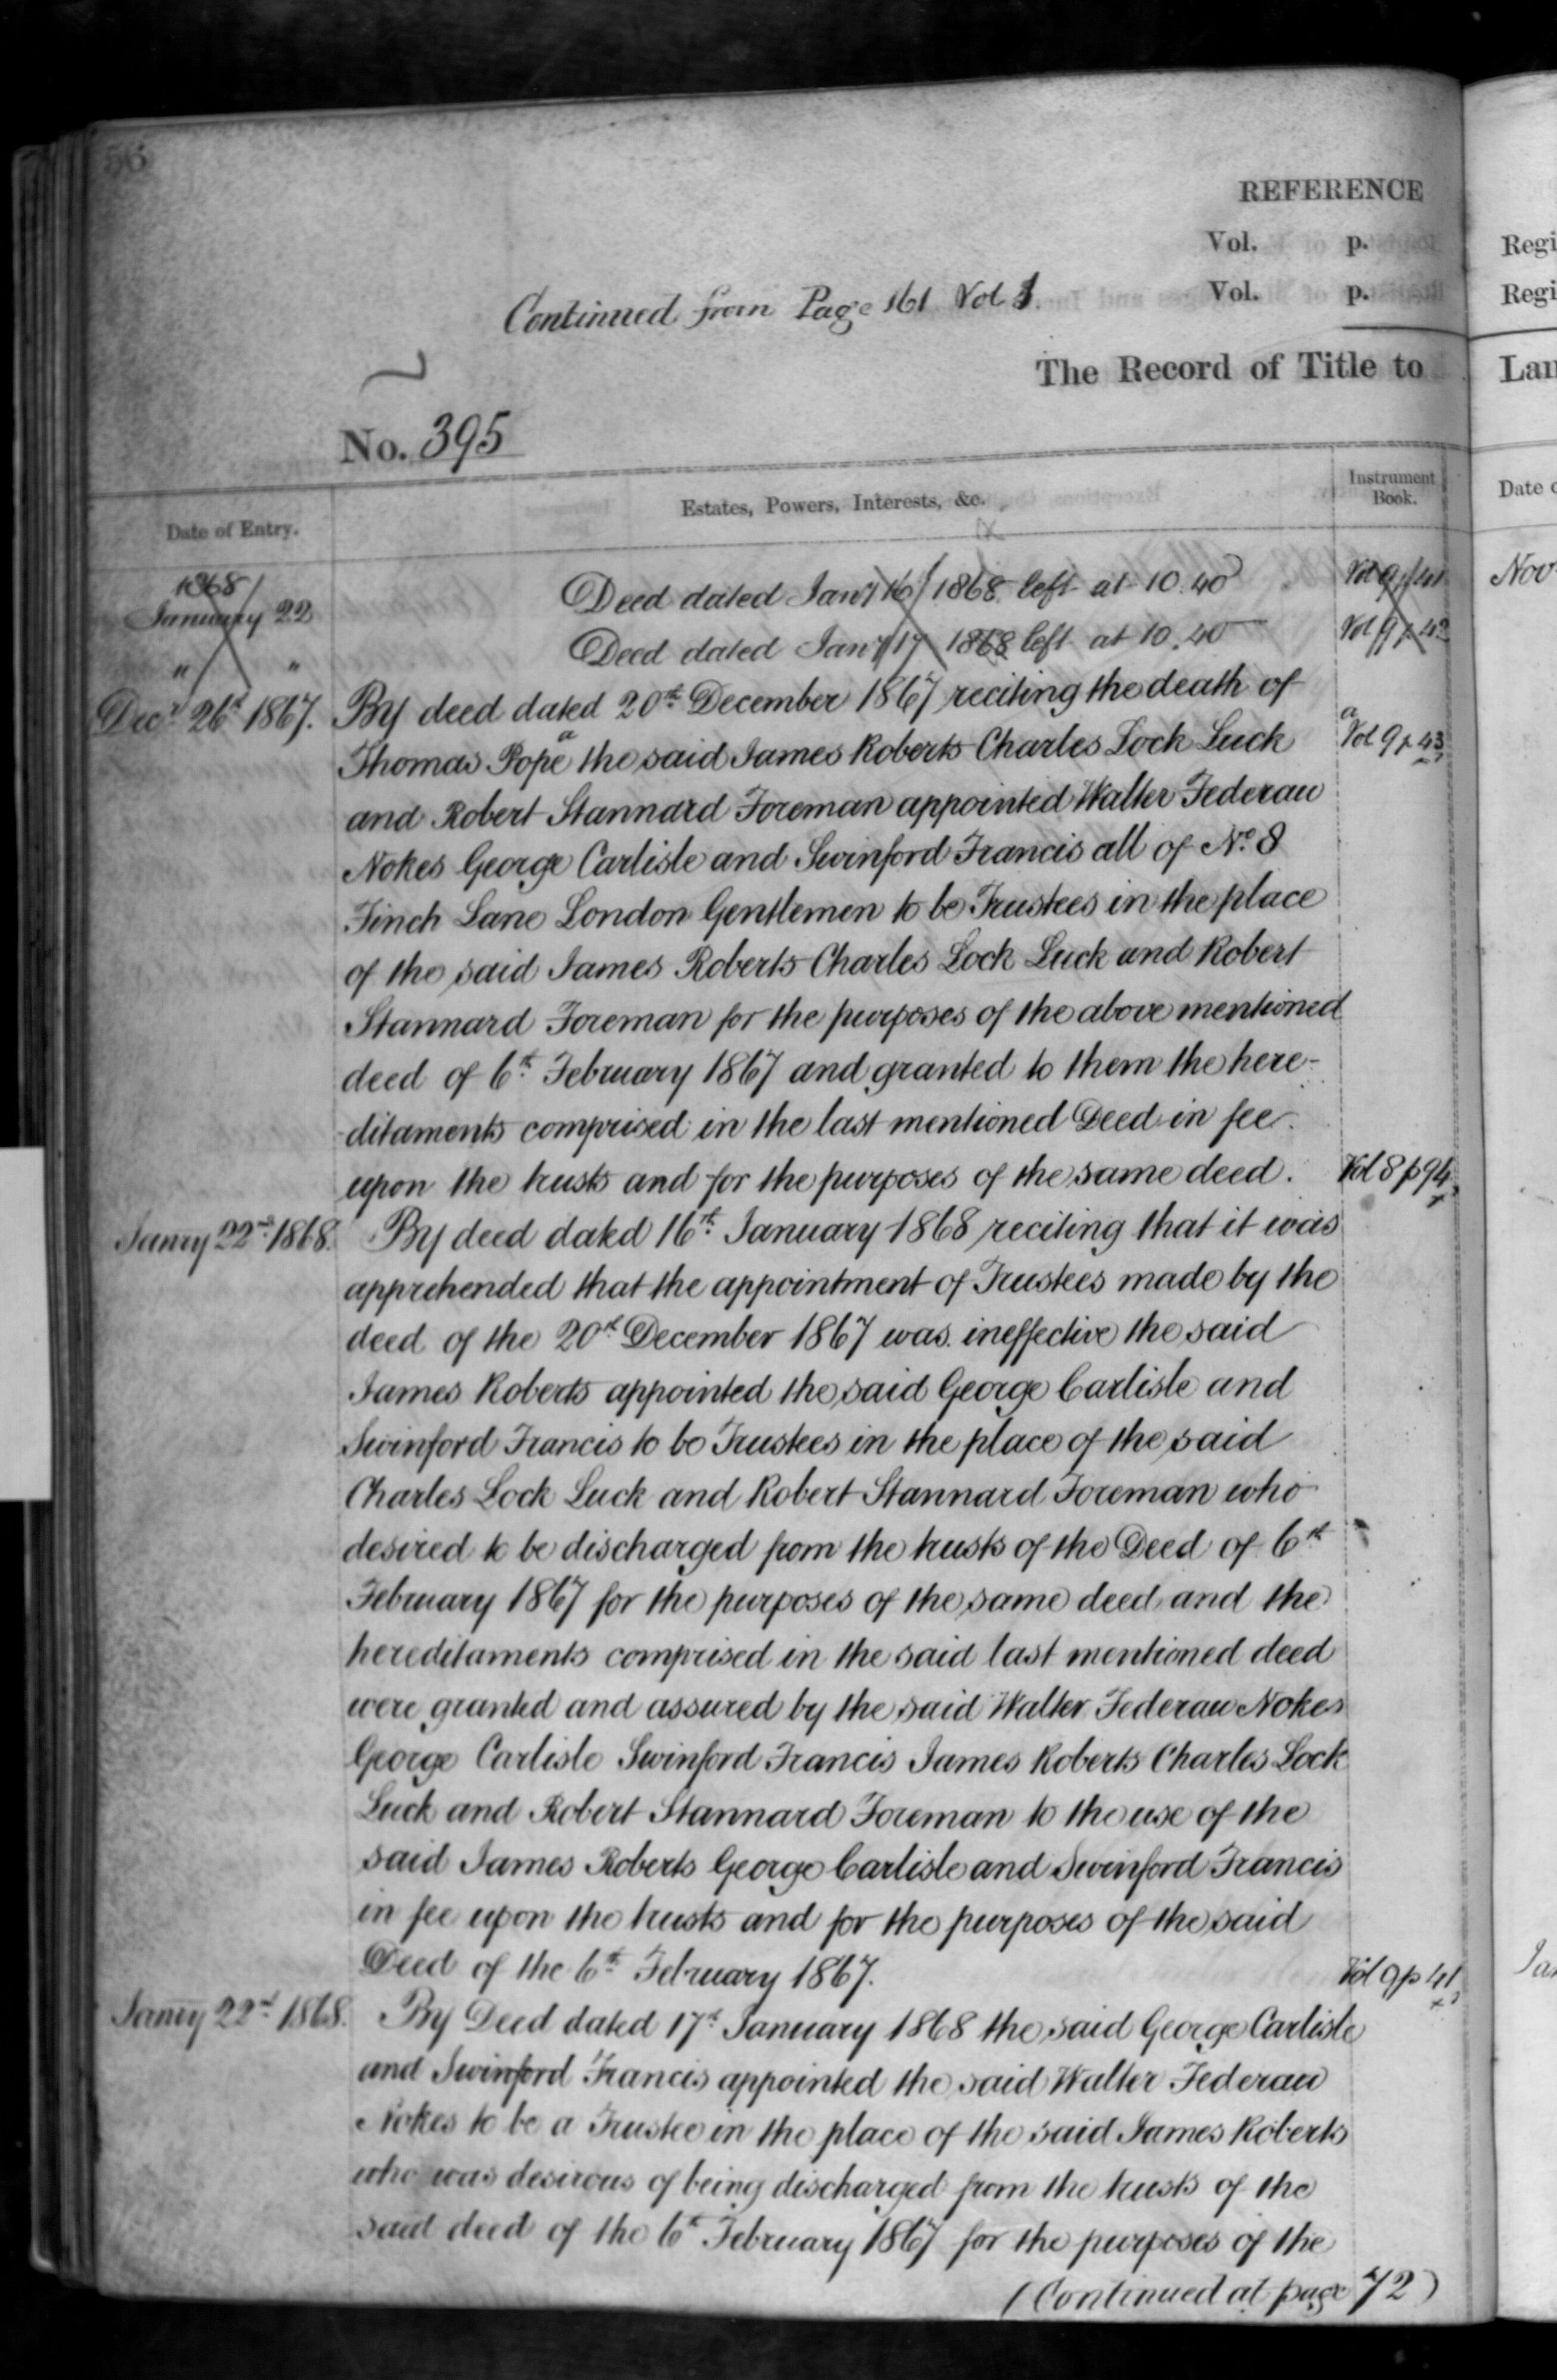 56
REFERENCE
Vol. p.
Continued from Page 161 Vol 1
Vol. p.
The Record of Title to
No. 395
Date of Entry.
Estates, Powers, Interests, &c.
Instrument Book.
1868
January 22 Deed dated Jany 16 1868 left at 10.40 Vol 9 p 41
" " Deed dated Jany 17 1868 left at 10.40 Vol 9 p 42
Decr 26th 1867. By deed dated 20th December 1867 reciting the death of
Thomas Pope a the said James Roberts Charles Lock Luck a Vol 9 p 43
and Robert Stannard Foreman appointed Walter Federau
Nokes George Carlisle and Swinford Francis all of No. 8
Finch Lane London Gentlemen to be Trustees in the place
of the said James Roberts Charles Lock Luck and Robert
Stannard Foreman for the purposes of the above mentioned
deed of 6th February 1867 and granted to them the here-
ditaments comprised in the last mentioned Deed in fee
upon the trusts and for the purposes of the same deed. Vol 8 p 94
Janry 22nd 1868. By deed dated 16th January 1868 reciting that it was
apprehended that the appointment of Trustees made by the
deed of the 20th December 1867 was ineffective the said
James Roberts appointed the said George Carlisle and
Swinford Francis to be Trustees in the place of the said
Charles Lock Luck and Robert Stannard Foreman who
desired to be discharged from the trusts of the Deed of 6th
February 1867 for the purposes of the same deed and the
hereditaments comprised in the said last mentioned deed
were granted and assured by the said Walter Federau Nokes
George Carlisle Swinford Francis James Roberts Charles Lock
Luck and Robert Stannard Foreman to the use of the
said James Roberts George Carlisle and Swinford Francis
in fee upon the trusts and for the purposes of the said
Deed of the 6th February 1867. Vol 9 p 41
Janry 22nd 1868. By Deed dated 17th January 1868 the said George Carlisle
and Swinford Francis appointed the said Walter Federau
Nokes to be a Trustee in the place of the said James Roberts
who was desirous of being discharged from the trusts of the
said deed of the 6th February 1867 for the purposes of the
(Continued at page 72)
Regi
Regi
Lan
Date o
Nov
Ja